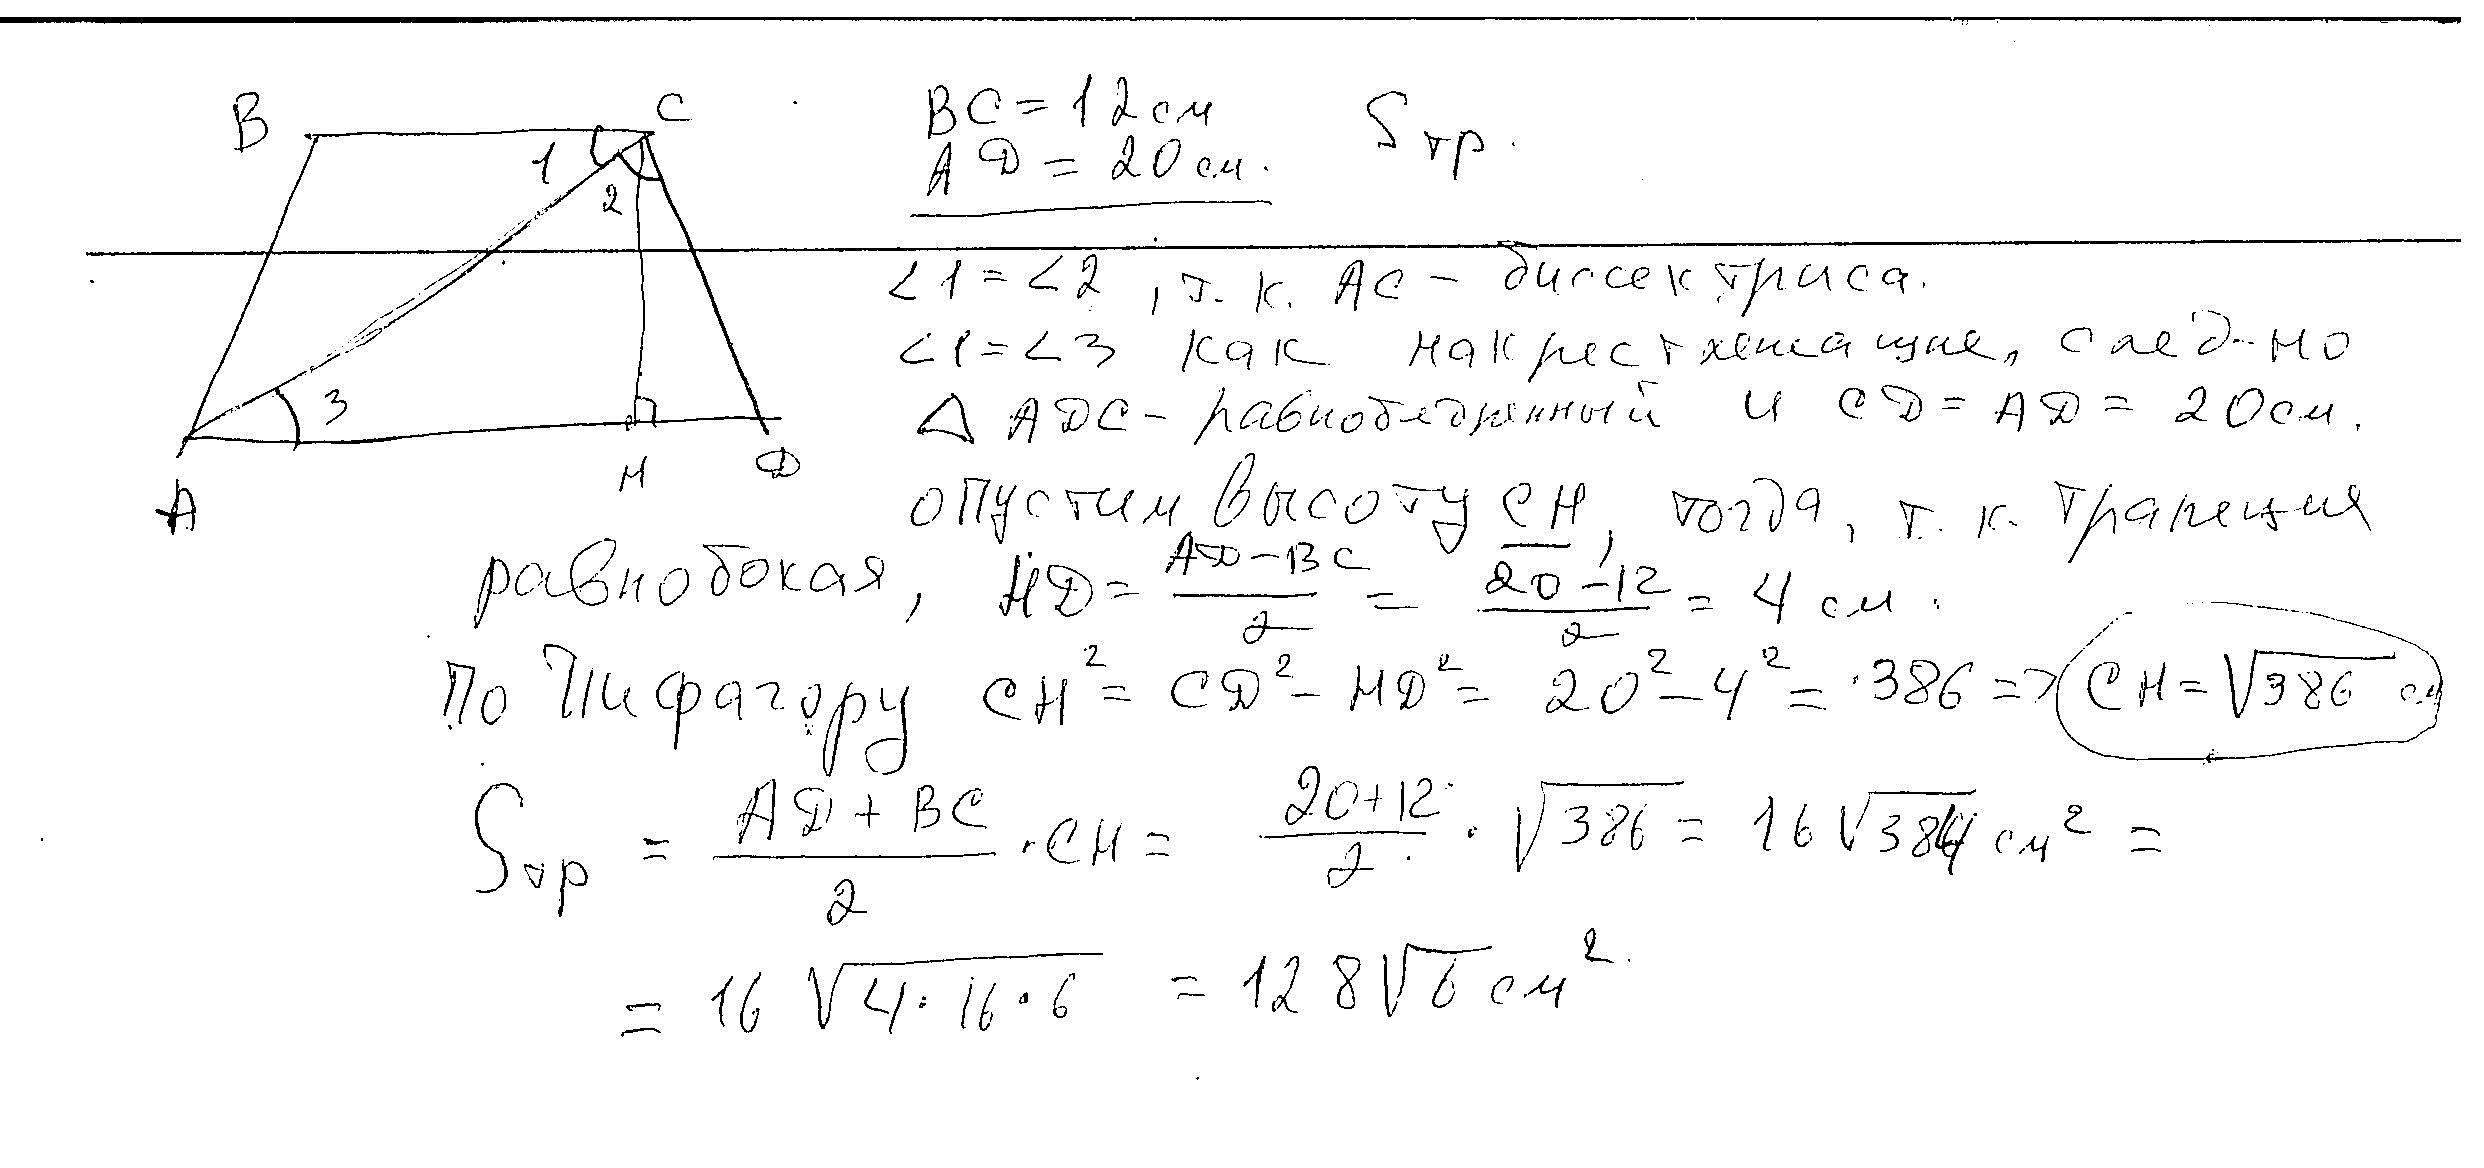 B C BC = 12 см S тр.
1 AD = 20 см.
2
∠1 = ∠2, т. к. AC - биссектриса.
∠1 = ∠3 как накрестлежащие, след-но
3 Δ ADC - равнобедренный и CD = AD = 20 см.
A H D опустим высоту CH, тогда, т. к. трапеция
равнобокая, HD = (AD - BC)/2 = (20 - 12)/2 = 4 см.
По Пифагору CH² = CD² - HD² = 20² - 4² = 386 => CH = √386 см
Sтр = (AD + BC)/2 · CH = (20 + 12)/2 · √386 = 16 √384 см² =
= 16 √4 · 16 · 6 = 128 √6 см²